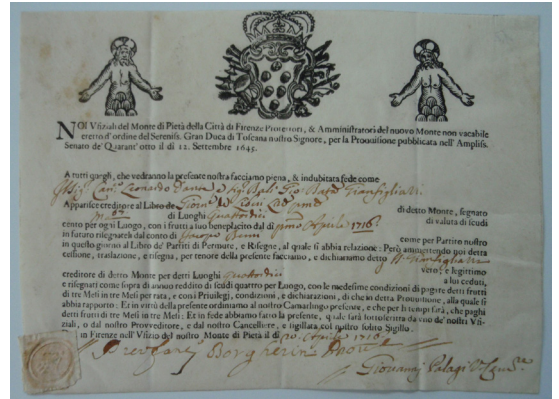 NOI Vfiziali del Monte di Pietà della Città di Firenze Protettori, & Amministratori del nuovo Monte non vacabile
eretto d'ordine del Sereniss. Gran Duca di Toscana nostro Signore, per la Prouuisione pubblicata nell' Ampliss.
Senato de' Quarant' otto il dì 12. Settembre 1645.
A tutti quegli, che vedranno la presente nostra facciamo piena, & indubitata fede come
Leonardo Dante
Apparisce creditore al Libro de di detto Monte, segnato
di Luoghi quattordici di valuta di scudi
cento per ogni Luogo, con i frutti a suo beneplacito dal dì Aprile 1716
in futuro risegnatrà dal conto di come per Partito nostro
in questo giorno al Libro de' Partiti di Permute, e Risegne, al quale si abbia relazione: Però ammettendo noi detta
cessione, traslazione, e risegna, per tenore della presente facciamo, e dichiariamo detto
vero, e legittimo
creditore di detto Monte per detti Luoghi quattordici a lui ceduti,
e risegnati come sopra di annuo reddito di scudi quattro per Luogo, con le medesime condizioni di pagare detti frutti
di tre Mesi in tre Mesi per rata, e con i Priuilegi, condizioni, e dichiarazioni, di che in detta Prouuisione, alla quale si
abbia rapporto: Et in virtù della presente ordiniamo al nostro Camarlingo presente, e che per li tempi sarà, che paghi
detti frutti di tre Mesi in tre Mesi: Et in fede abbiamo fatto la presente, quale sarà sottoscritta da vno de' nostri Vfi-
ziali, o dal nostro Provveditore, e dal nostro Cancelliere, e sigillata col nostro solito Sigillo.
in Firenze nell' Vfizio del nostro Monte di Pietà il dì Aprile 1716
Borgherini
Giovanni Palagi